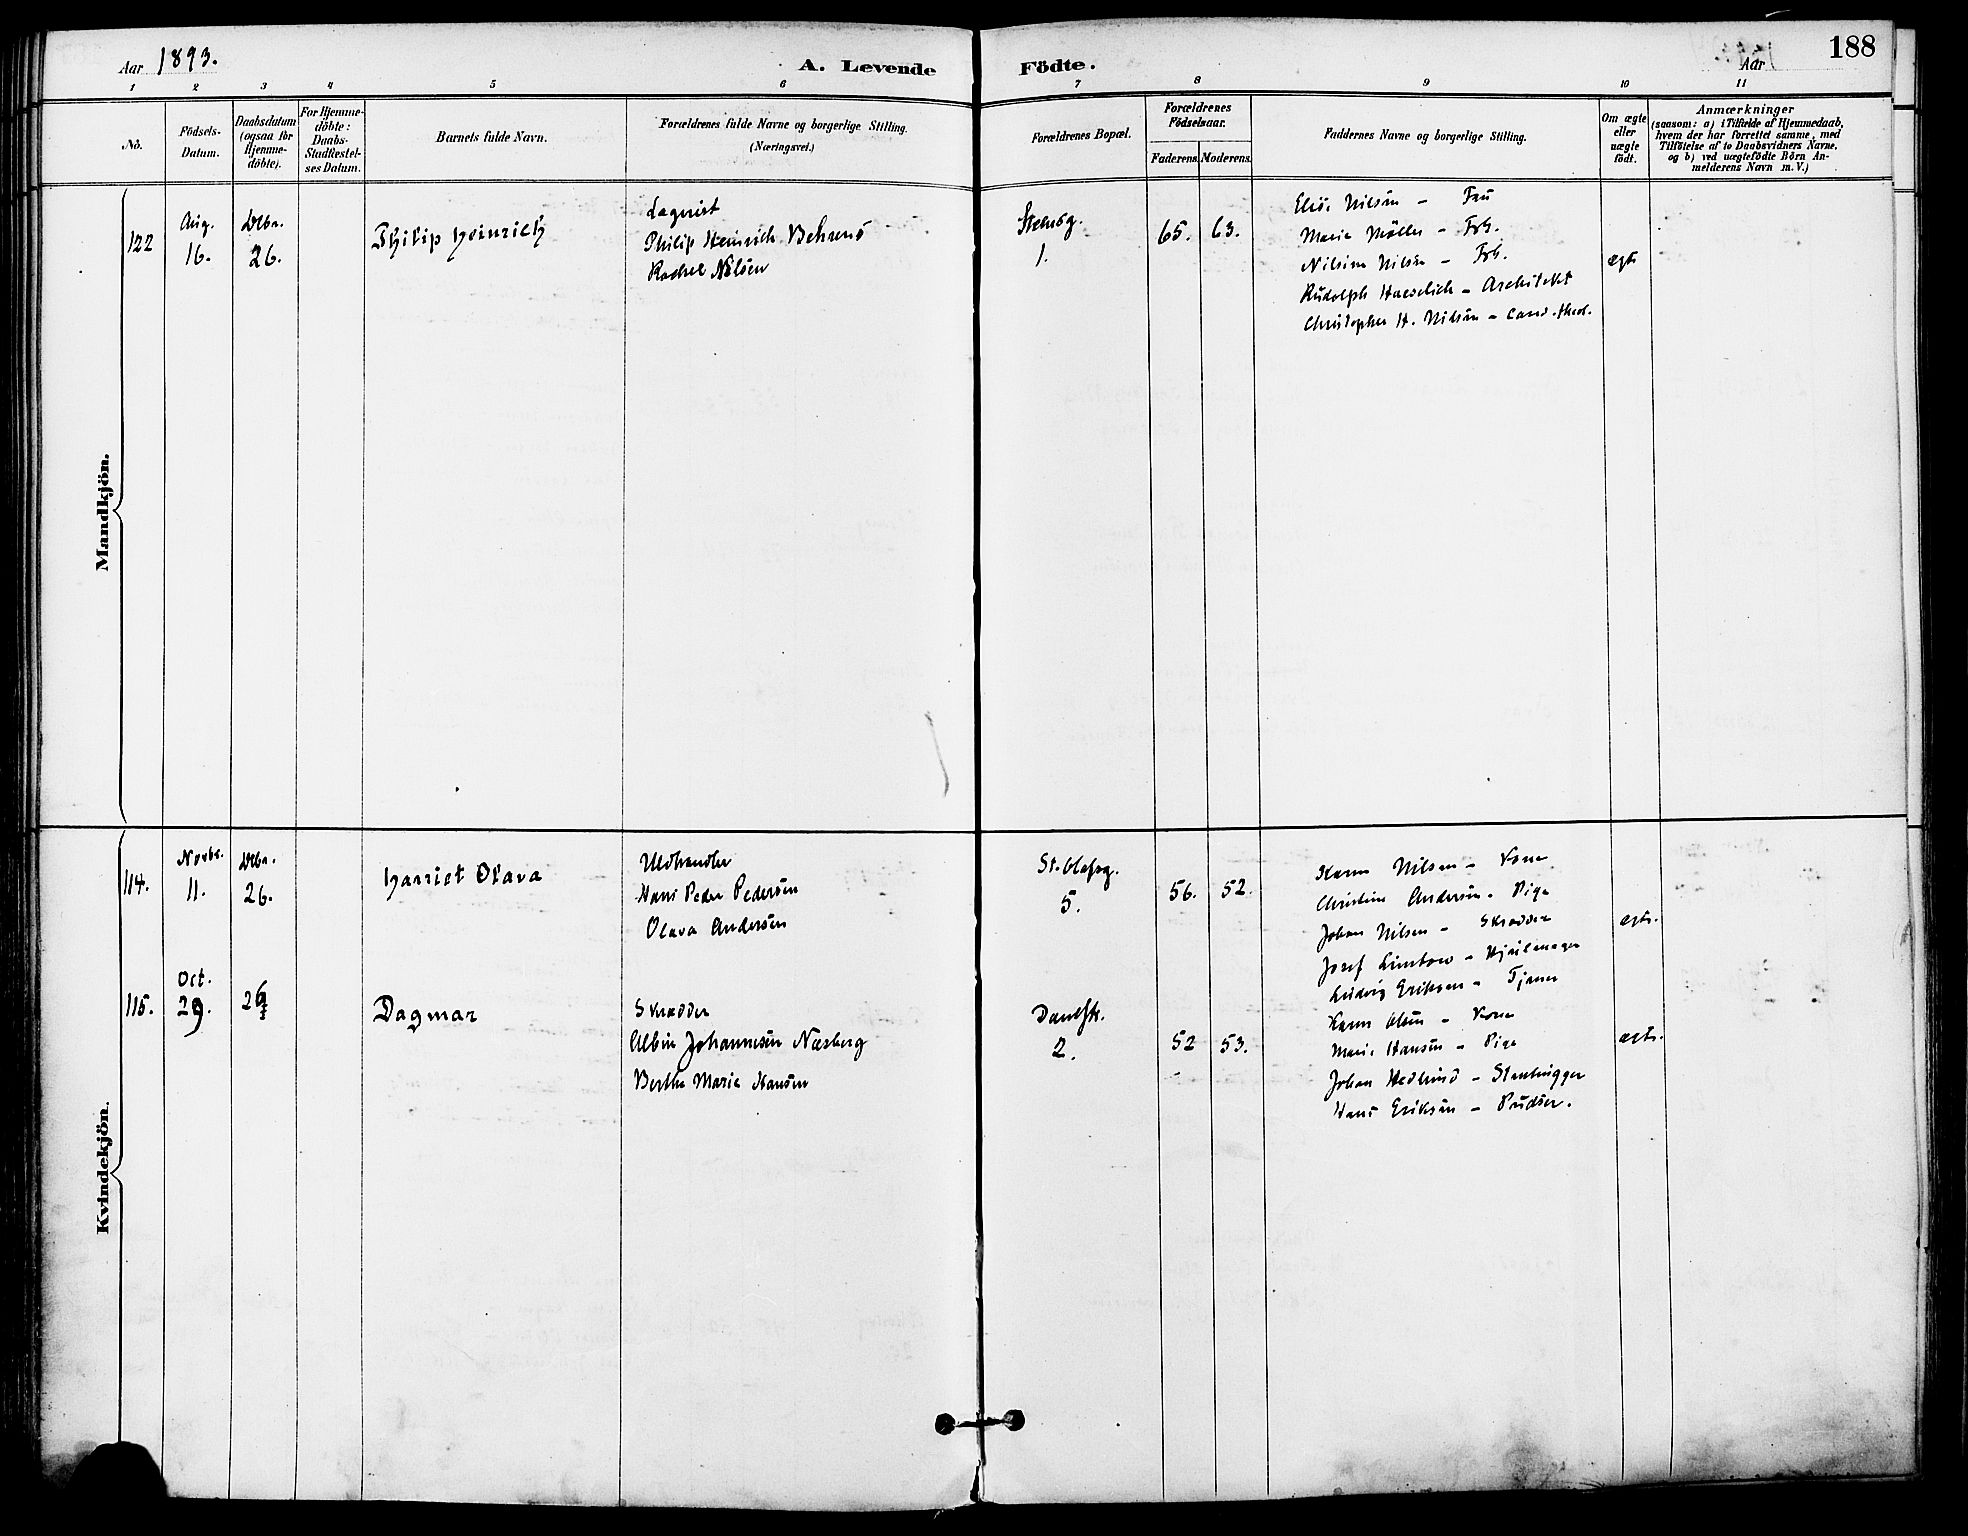 Aar 1893.
A. Levende Födte.
Aar
188
1 2 3 4 5 6 7 8 9 10 11
No.
Födsels-
Datum.
Daabsdatum
(ogsaa for
Hjemme-
döbte).
For Hjemme-
döbte:
Daabs-
Stadfæstel-
ses Datum.
Barnets fulde Navn.
Forældrenes fulde Navne og borgerlige Stilling.
(Næringsvei.)
Forældrenes Bopæl.
Forældrenes
Födselsaar.
Faderens. Moderens.
Faddernes Navne og borgerlige Stilling.
Om ægte
eller
uægte
födt.
Anmærkninger
(saasom: a) i Tilfælde af Hjemmedaab,
hvem der har forrettet samme, med
Tilföielse af to Daabsvidners Navne,
og b) ved uægtefödte Börn An-
melderens Navn m. V.)
Mandkjön.
122
Aug.
16.
Dcbr.
26.
Philip Heinrich
Philip Heinrich Behrens
Rachel Nilsen
Stensbg.
1.
65. 63.
Elise Nilsen - Fru
Marie Möller - Frk.
Nilsine Nilsen - Frk.
Rudolph Haeselich - Architekt
Christopher H. Nilsen - Cand. theol.
ægte
Kvindekjön.
114.
Novbr.
11.
Dcbr.
26.
Harriet Olava
Uldhandler
Hans Peder Pedersen
Olava Andersen
St. Olafsg.
5.
56. 52.
Karen Nilsen - Kone
Christine Andersen - Pige
Johan Nilsen - Skrædder
Josef Linstow - Hjulmager
Ludvig Eriksen - Tjener
ægte.
115.
Oct.
29.
26
Dagmar
Skrædder
Albin Johannesen Næsberg
Berthe Marie Hansen
2.
52 53.
Karen Olsen - Kone
Marie Hansen - Pige
Johan Hedlund - Stenhugger
Hans Eriksen - Pudser.
ægte.